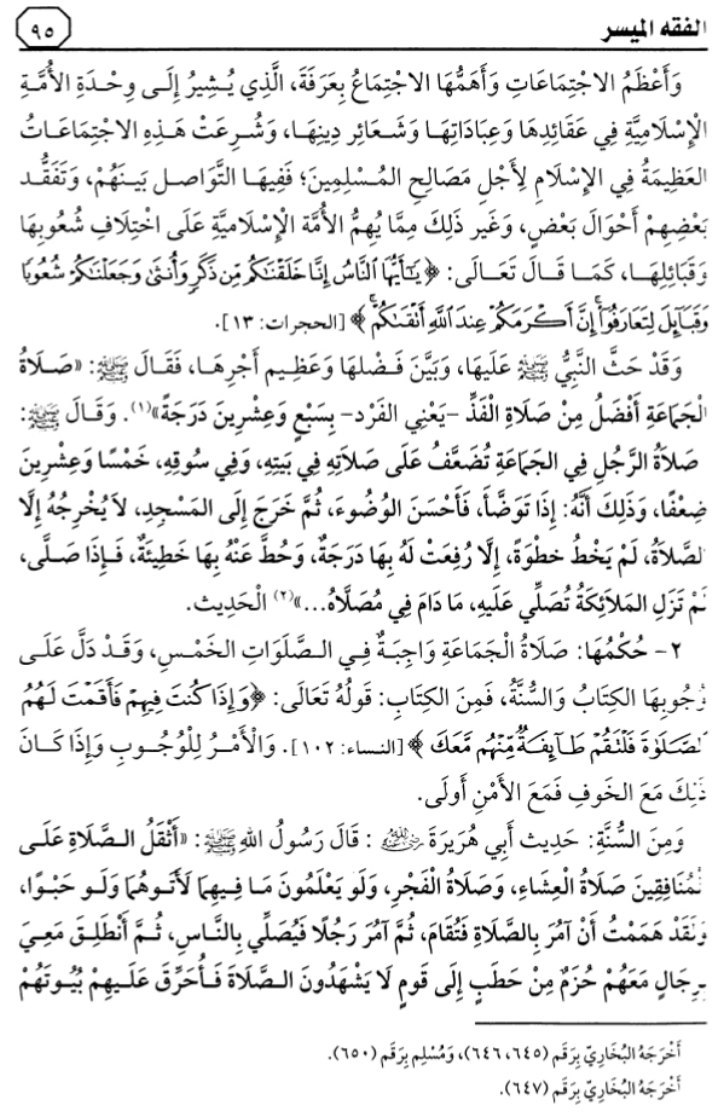 الفقه الميسر
٩٥
وَأَعْظَمُ الاجْتِمَاعَاتِ وَأَهَمُّهَا الاجْتِمَاعُ بِعَرَفَةَ، الَّذِي يُشِيرُ إِلَى وِحْدَةِ الأُمَّةِ
الإِسْلَامِيَّةِ فِي عَقَائِدِهَا وَعِبَادَاتِهَا وَشَعَائِرِ دِينِهَا، وَشُرِعَتْ هَذِهِ الاجْتِمَاعَاتُ
العَظِيمَةُ فِي الإِسْلَامِ لِأَجْلِ مَصَالِحِ المُسْلِمِينَ؛ فَفِيهَا التَّوَاصل بَينَهُمْ، وَتَفَقُّد
بَعْضِهِمْ أَحْوَالَ بَعْضٍ، وَغَيرِ ذَلِكَ مِمَّا يُهِمُّ الأُمَّة الْإِسْلَامِيَّةَ عَلَى اخْتِلَافِ شُعُوبِهَا
وَقَبَائِلِهَا، كَمَا قَالَ تَعَالَى: ﴿يَٰٓأَيُّهَا ٱلنَّاسُ إِنَّا خَلَقْنَٰكُم مِّن ذَكَرٍ وَأُنثَىٰ وَجَعَلْنَٰكُمْ شُعُوبًا
وَقَبَآئِلَ لِتَعَارَفُوٓا۟ ۚ إِنَّ أَكْرَمَكُمْ عِندَ ٱللَّهِ أَتْقَىٰكُمْ ۚ﴾ [الحجرات: ١٣].
وَقَدْ حَثَّ النَّبِيُّ ﷺ عَلَيهَا، وَبَيَّنَ فَضْلهَا وَعَظِيم أَجْرِهَا، فَقَالَ ﷺ: «صَلَاةُ
الْجَمَاعَةِ أَفْضَلُ مِنْ صَلَاةِ الْفَذِّ -يَعْنِي الفَرْد- بِسَبْعٍ وَعِشْرِينَ دَرَجَةً»(١). وَقَالَ ﷺ:
صَلَاةُ الرَّجُلِ فِي الجَمَاعَةِ تُضَعَّفُ عَلَى صَلَاتِهِ فِي بَيتِهِ، وَفِي سُوقِهِ، خَمْسًا وَعِشْرِينَ
ضِعْفًا، وَذَلِكَ أَنَّهُ: إِذَا تَوَضَّأَ، فَأَحْسَنَ الْوُضُوءَ، ثُمَّ خَرَجَ إِلَى المَسْجِدِ، لاَ يُخْرِجُهُ إِلَّا
الصَّلَاةُ، لَمْ يَخْطُ خطْوَةً، إِلَّا رُفِعَتْ لَهُ بِهَا دَرَجَةٌ، وَحُطَّ عَنْهُ بِهَا خَطِيئَةٌ، فَإِذَا صَلَّى،
لَمْ تَزَلِ المَلَائِكَةُ تُصَلِّي عَلَيهِ، مَا دَامَ فِي مُصَلَّاهُ...»(٢) الْحَدِيث.
٢- حُكْمُهَا: صَلَاةُ الْجَمَاعَةِ وَاجِبَةٌ فِي الصَّلَوَاتِ الخَمْسِ، وَقَدْ دَلَّ عَلَى
وُجُوبِهَا الكِتَابُ وَالسُّنَّةُ، فَمِنَ الكِتَابِ: قَولُهُ تَعَالَى: ﴿وَإِذَا كُنتَ فِيهِمْ فَأَقَمْتَ لَهُمُ
ٱلصَّلَوٰةَ فَلْتَقُمْ طَآئِفَةٌ مِّنْهُم مَّعَكَ﴾ [النساء: ١٠٢]. وَالْأَمْرُ لِلْوُجُوبِ وَإِذَا كَانَ
ذَلِكَ مَعَ الخَوفِ فَمَعَ الأَمْنِ أَولَى.
وَمِنَ السُّنَّةِ: حَدِيث أَبِي هُرَيرَةَ رضي الله عنه: قَالَ رَسُولُ اللهِ ﷺ: «أَثْقَلُ الصَّلَاةِ عَلَى
المُنَافِقِينَ صَلَاةُ الْعِشَاءِ، وَصَلَاةُ الْفَجْرِ، وَلَو يَعْلَمُونَ مَا فِيهِمَا لَأَتَوهُمَا وَلَو حَبْوًا،
وَلَقَدْ هَمَمْتُ أَنْ آمُرَ بِالصَّلَاةِ فَتُقَامَ، ثُمَّ آمُرَ رَجُلًا فَيُصَلِّي بِالنَّاسِ، ثُمَّ أَنْطَلِقَ مَعِيَ
بِرِجَالٍ مَعَهُمْ حُزَمٌ مِنْ حَطَبٍ إِلَى قَومٍ لَا يَشْهَدُونَ الصَّلَاةَ فَأُحَرِّقَ عَلَيهِمْ بُيُوتَهُمْ
أَخْرَجَهُ البُخَارِيّ بِرَقَم (٦٤٥، ٦٤٦)، وَمُسْلِم بِرَقَم (٦٥٠).
أَخْرَجَهُ البُخَارِيّ بِرَقَم (٦٤٧).